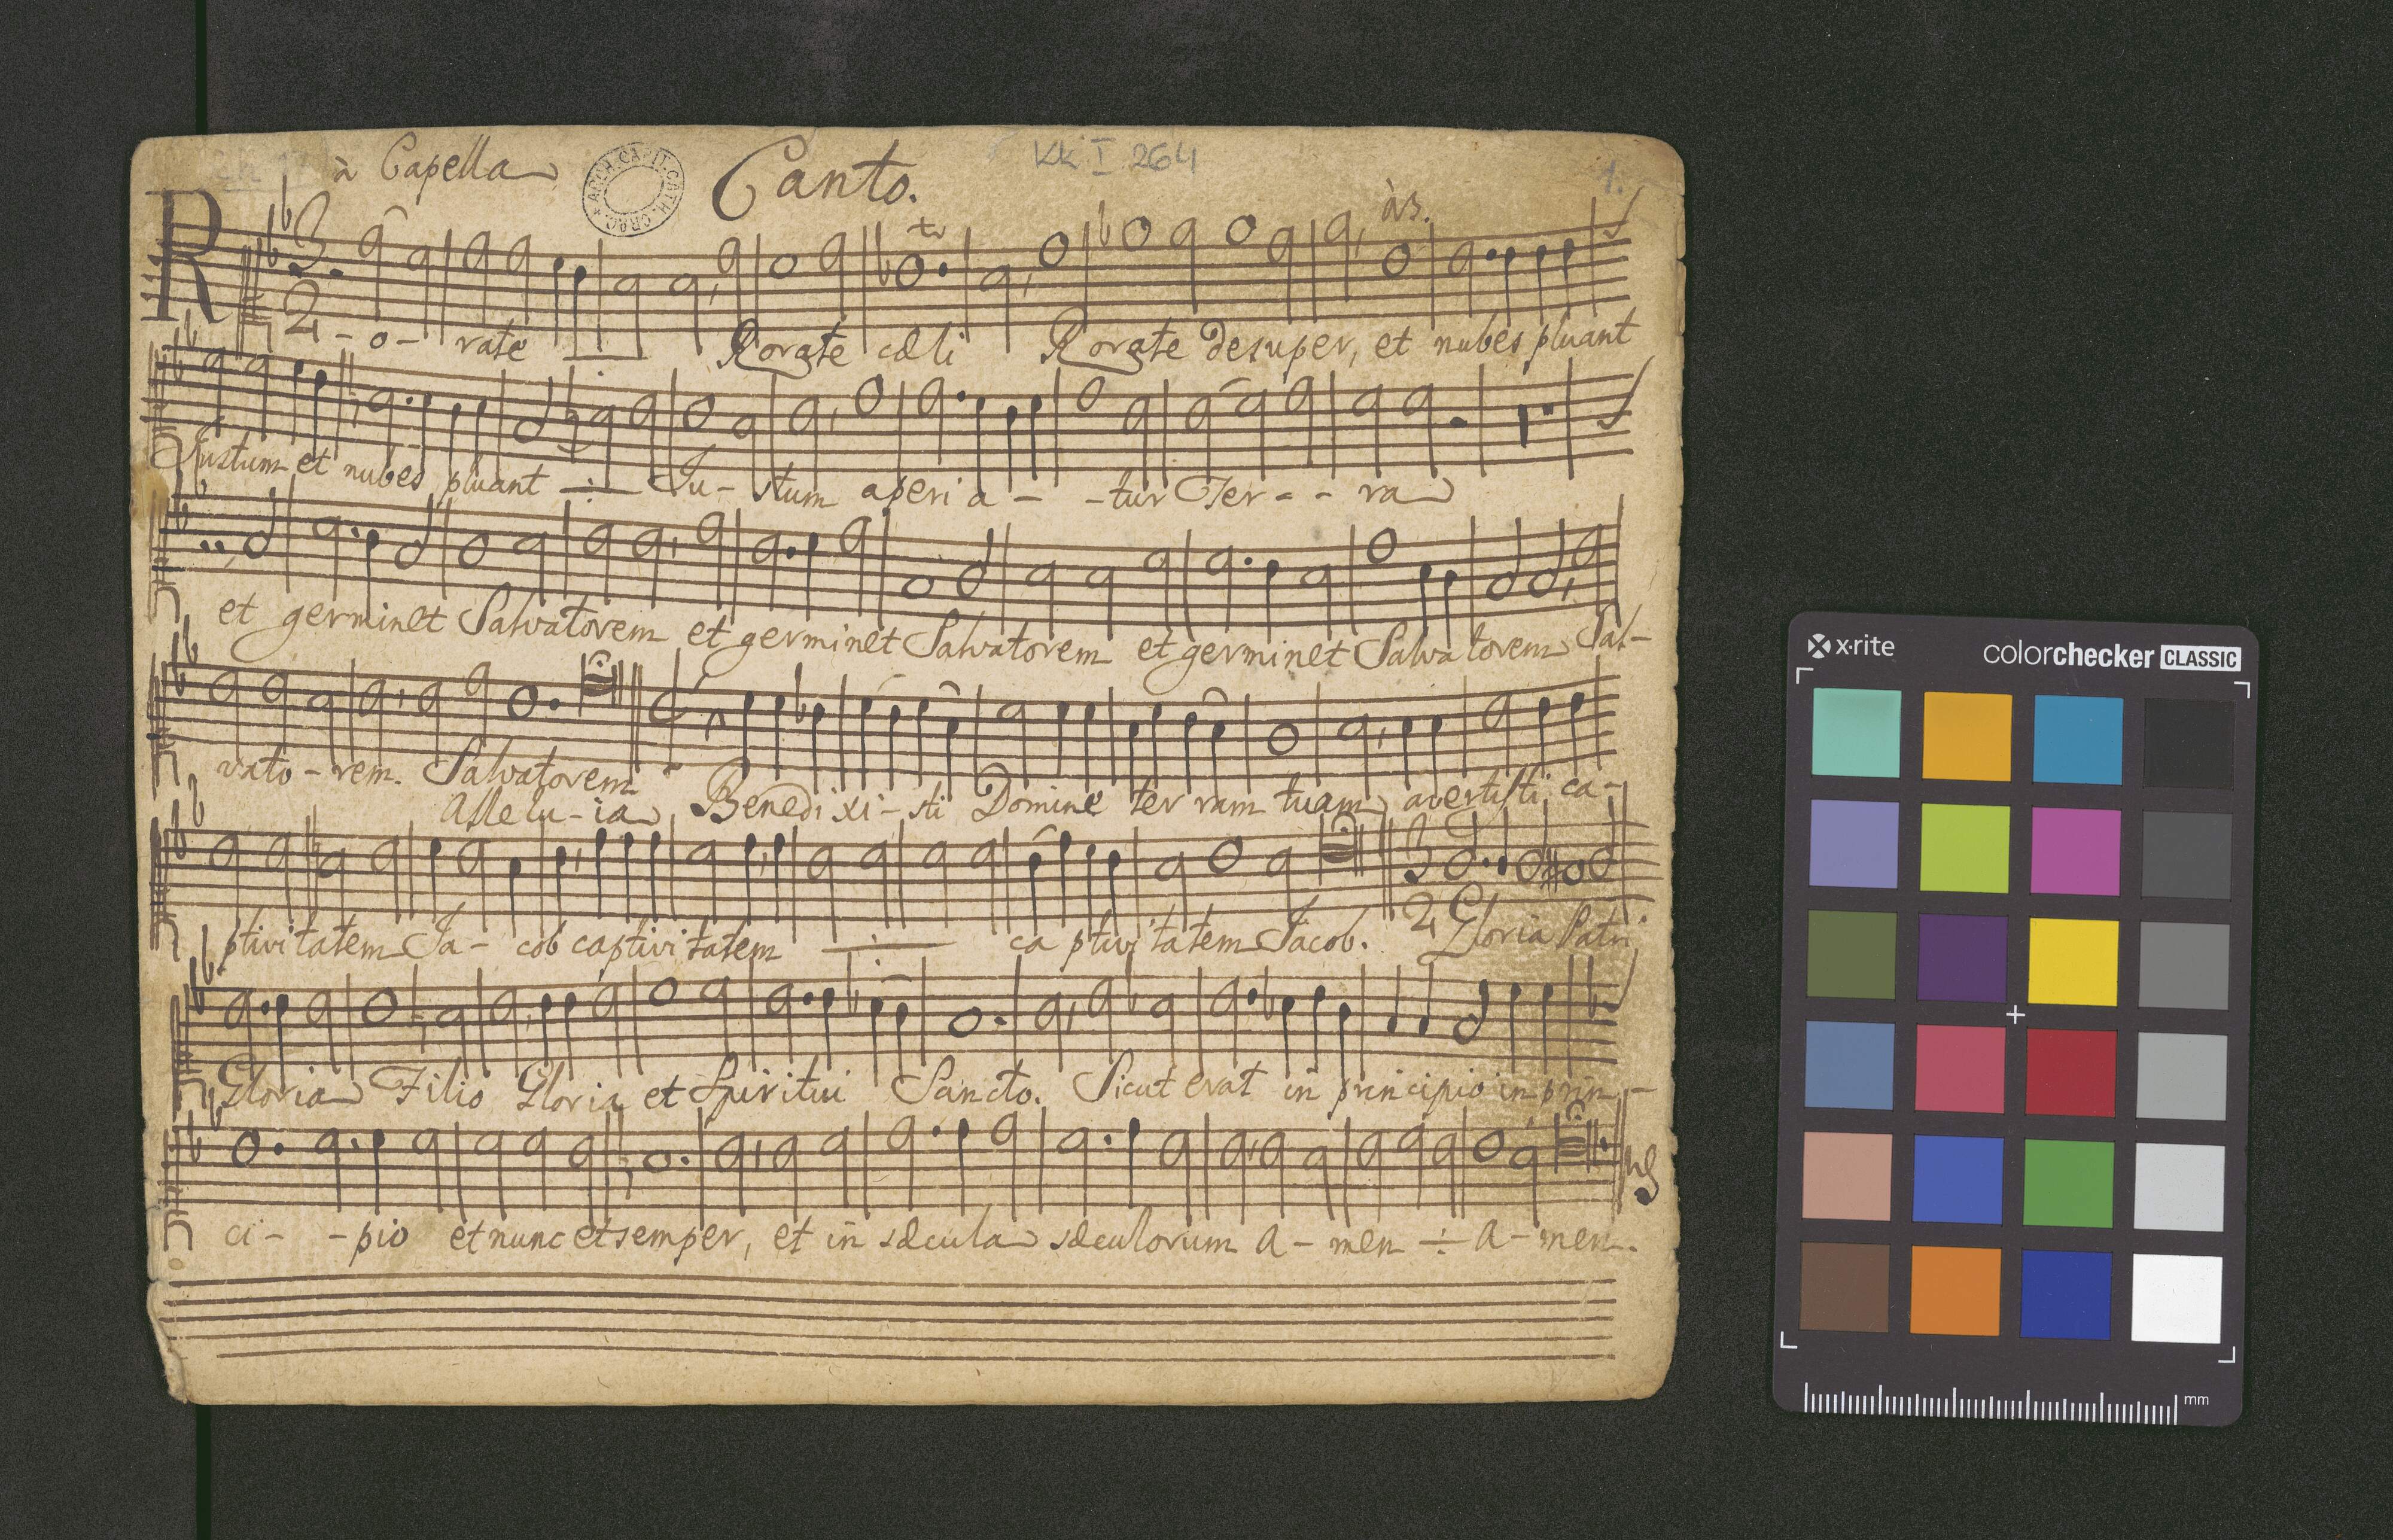 à Capella Canto. KK I. 264 1.
ARCH. CAPIT. CATH. CRAC.
à3.
R-o-rate Rorate cæli Rorate desuper, et nubes pluant
Justum et nubes pluant -÷- Ju-stum aperia- -tur Ter-- ra
et germinet Salvatorem et germinet Salvatorem et germinet Salvatorem Sal-
vato-rem. Salvatorem Benedixi-sti Domine terram tuam avertisti ca-
Allelu-ia
ptivitatem Ja-cob captivitatem -÷- captivitatem Jacob. Gloria Patri
Gloria Filio Gloria et Spiritui Sancto. Sicut erat in principio in prin-
ci- -pio et nunc et semper, et in sæcula sæculorum A-men -÷- A-men.
x·rite colorchecker CLASSIC
mm